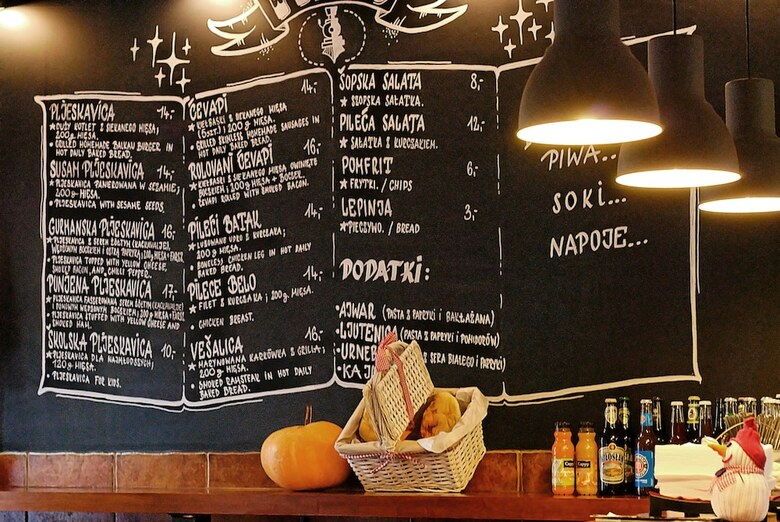 PLJESKAVICA 14,-
★ DUŻY KOTLET Z SIEKANEGO MIĘSA;
200g MIĘSA.
• GRILLED HOMEMADE BALKAN BURGER IN
HOT DAILY BAKED BREAD.
SUSAM PLJESKAVICA 14,-
★ PLJESKAVICA PANIEROWANA W SEZAMIE;
200g MIĘSA.
• PLJESKAVICA WITH SESAME SEEDS.
GURMANSKA PLJESKAVICA 16,-
★ PLJESKAVICA Z SEREM ŻÓŁTYM
• PLJESKAVICA TOPPED WITH YELLOW CHEESE,
SMOKED BACON, AND CHILLI PEPPER.
PUNJENA PLJESKAVICA 17,-
• PLJESKAVICA STUFFED WITH YELLOW CHEESE AND
SMOKED HAM.
ŠKOLSKA PLJESKAVICA 10,-
★ PLJESKAVICA DLA NAJMŁODSZYCH;
120g MIĘSA.
• PLJESKAVICA FOR KIDS.
ĆEVAPI 14,-
★ KIEŁBASKI Z SIEKANEGO MIĘSA
(6szt.); 200g MIĘSA.
• GRILLED BONELESS HOMEMADE SAUSAGES IN
HOT DAILY BAKED BREAD.
ROLOVANI ĆEVAPI 16,-
★ KIEŁBASKI Z SIEKANEGO MIĘSA OWINIĘTE
BOCZKIEM; 200g MIĘSA + BOCZEK.
• ĆEVAPI ROLLED WITH SMOKED BACON.
PILEĆI BATAK 14,-
★ LUZOWANE UDKO Z KURCZAKA;
200g MIĘSA.
• BONELESS CHICKEN LEG IN HOT DAILY
BAKED BREAD.
PILECE BELO 14,-
★ FILET Z KURCZAKA; 200g MIĘSA.
• CHICKEN BREAST.
VEŠALICA 16,-
★ MARYNOWANA KARKÓWKA Z GRILLA;
200g MIĘSA.
• SMOKED RACKSTEAK IN HOT DAILY
BAKED BREAD.
ŠOPSKA SALATA 8,-
★ SZOPSKA SAŁATKA.
PILEĆA SALATA 12,-
★ SAŁATKA Z KURCZAKIEM.
POMFRIT 6,-
★ FRYTKI. / CHIPS
LEPINJA 3,-
★ PIECZYWO. / BREAD
DODATKI:
• AJWAR (PASTA Z PAPRYKI I BAKŁAŻANA)
• LJUTENICA (PASTA Z PAPRYKI I POMIDORÓW)
• URNEB Z SERA BIAŁEGO I PAPRYKI)
• KAJ
PIWA...
SOKI...
NAPOJE...
Cappy
Cappy